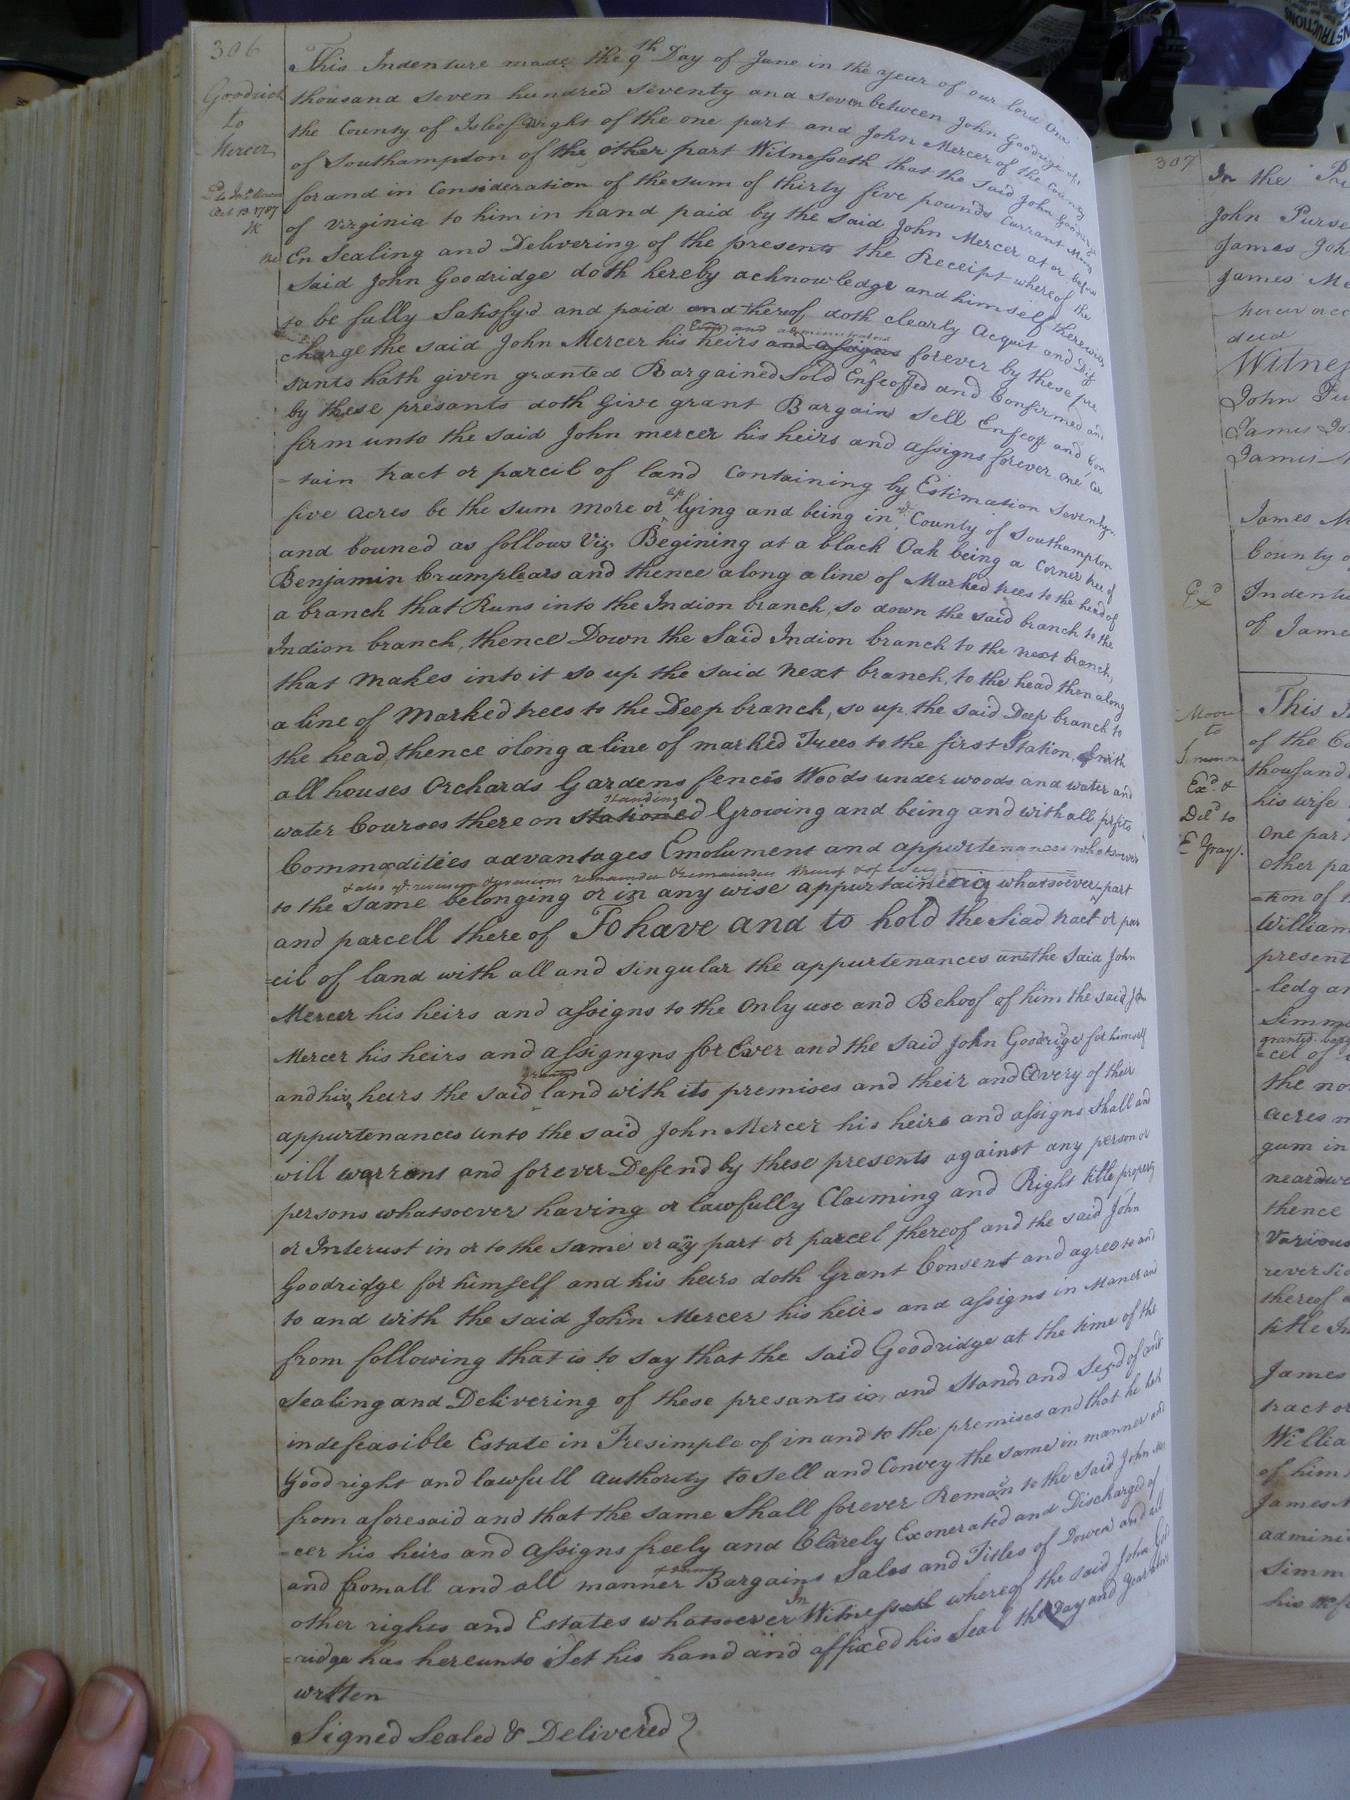 306
Goodrich
to
Mercer
Oct 13 1787
This Indenture made the 9th Day of June in the year of our lord One
thousand seven hundred seventy and seven between John Goodrige of
the County of Isle of Wight of the one part and John Mercer of the County
of Southampton of the other part Witnesseth that the said John Goodridge
for and in Consideration of the sum of thirty five pounds Currant Money
of Virginia to him in hand paid by the said John Mercer at or before
the En Sealing and Delivering of the presents the Receipt whereof the
said John Goodridge doth hereby acknowledge and himself therewith
to be fully Satisfyd and paid and thereof doth clearly Acquit and Dis
charge the said John Mercer his heirs and assigns Exrs and administrators forever by these pre
sants hath given granted Bargained Sold Enfeoffed and Confirmed and
by these presants doth Give grant Bargain Sell Enfeoff and Con
firm unto the said John mercer his heirs and assigns forever one Cer
=tain tract or parcil of land Containing by Estimation Seventy
five acres be the sum more or less lying and being in ye County of Southampton
and bouned as follows Viz. Begining at a black Oak being a Corner tree of
Benjamin Crumplears and thence along a line of Marked trees to the head of
a branch that Runs into the Indion branch, so down the said branch to the
Indion branch, thence Down the Said Indion branch to the next branch,
that makes into it so up the said next branch, to the head then along
a line of Marked trees to the Deep branch, so up the said Deep branch to
the head, thence along a line of marked Trees to the first Station, with
all houses Orchards Gardens fencis Woods under woods and water and
water Courses there on stationed Standing Growing and being and with all profits
Commodities advantages Emolument and appurtenances whatsoever
to the same belonging or in any wise appurtaining & also ye revercon & revercons remainder & remainders thereof & of every whatsoever part
and parcell there of To have and to hold the Siad tract or par
=cil of land with all and singular the appurtenances unto the said John
Mercer his heirs and assigns to the Only use and Behoof of him the said Jno
Mercer his heirs and assigngns for Ever and the said John Goodridge for himself
and his heirs the said granted land with its premises and their and Every of their
appurtenances unto the said John Mercer his heirs and assigns Shall and
will warrant and forever Defend by these presents against any person or
persons whatsoever having or lawfully Claiming and Right title property
or Interust in or to the same or any part or parcel thereof and the said John
Goodridge for himself and his heirs doth Grant Consent and agree to and
to and with the said John Mercer his heirs and assigns in Maner and
from following that is to say that the said Goodridge at the time of the
Sealing and Delivering of these presants is and Stands and Seizd of and
indefeasible Estate in Fresimple of in and to the premises and that he hath
Good right and lawfull Authority to Sell and Convey the same in manner and
from aforesaid and that the same Shall forever Reman to the said John Mer
=cer his heirs and Assigns freely and Clarely Exonerated and Discharged of
and from all and all manner former Bargains Sales and Titles of Dower and all
other rights and Estates whatsoever In Witness whereof the said John Good
=ridge has hereunto Set his hand and affixed his Seal the Day and Year above
written
Signed Sealed & Delivered
307
In the Pre
John Purse
James Joh
James Me
deed
Witnes
John Pu
James Jo
James
James M
County o
Exd
Indentu
of Jame
Moore
to
Simmo
Exd &
Deld to
E Gray
This I
of the Co
thousand
his wife
One part
other pa
=tion of t
William
present
=ledg an
Simmo
granted barg
=cel of
the no
acres m
gum in
thence
Various
reversio
thereof a
title In
James
tract or
Willia
of him
James M
adminis
Simm
his wife
INSTRUCTIONS